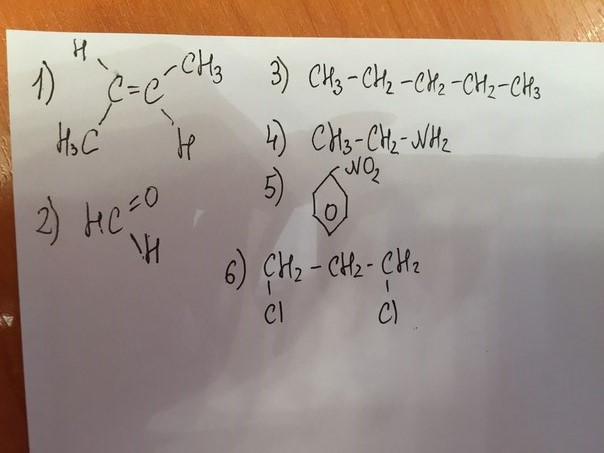 1) H CH₃
C=C
H₃C H
2) HC=O
H
3) CH₃-CH₂-CH₂-CH₂-CH₃
4) CH₃-CH₂-NH₂
5) NO₂
6) CH₂-CH₂-CH₂
Cl Cl